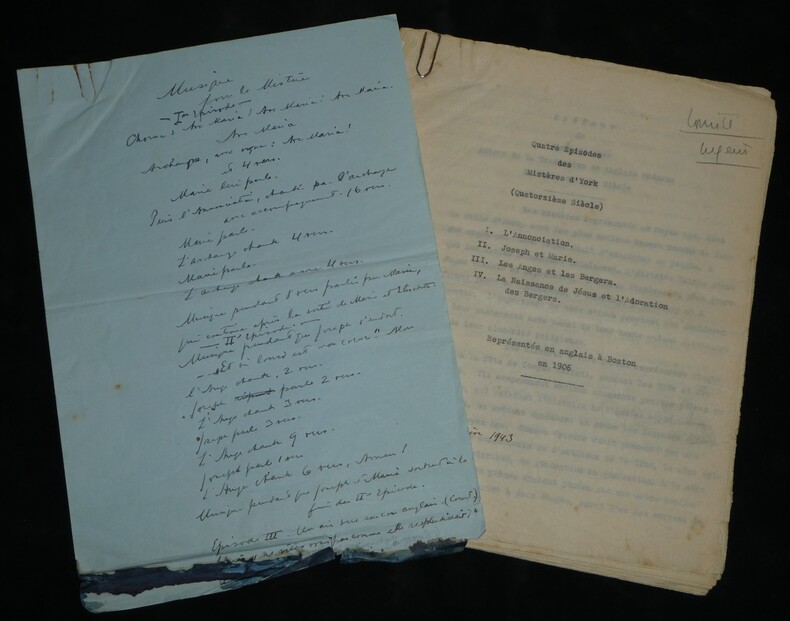 Musique
pour le Mistère
Ier Episode
Choeur: Ave Maria! Ave Maria! Ave Maria.
Ave Maria
Archange, avec orgue: Ave Maria!
et 4 vers.
Marie lui parle.
Puis l'Annonciation, chantée par l'archange
avec accompagnement. 16 vers.
Marie parle.
L'archange chante 4 vers.
Marie parle.
L'archange chante encore 4 vers.
Musique pendant 8 vers parlés par Marie,
qui continue après la sortie de Marie et
IIe Episode.
Musique pendant que Joseph s'endort.
Et si lourd est mon coeur"
l'Ange chante. 2 vers.
Joseph parle 2 vers.
L'Ange chante 3 vers.
Joseph parle 3 vers.
L'Ange chante 9 vers.
Joseph parle 1 vers
L'Ange chante 6 vers, Amen!
Musique pendant que Joseph et Marie sortent
fin du IIe Episode.
Episode III - Un air sur un cor anglais.
comme elle resplendissait
Quatre Episodes
des
Mistères d'York
(Quatorzième Siècle)
I. L'Annonciation.
II. Joseph et Marie.
III. Les Anges et les Bergers.
IV. La Naissance de Jésus et l'Adoration
des Bergers.
Représentés en anglais à Boston
en 1906
1943